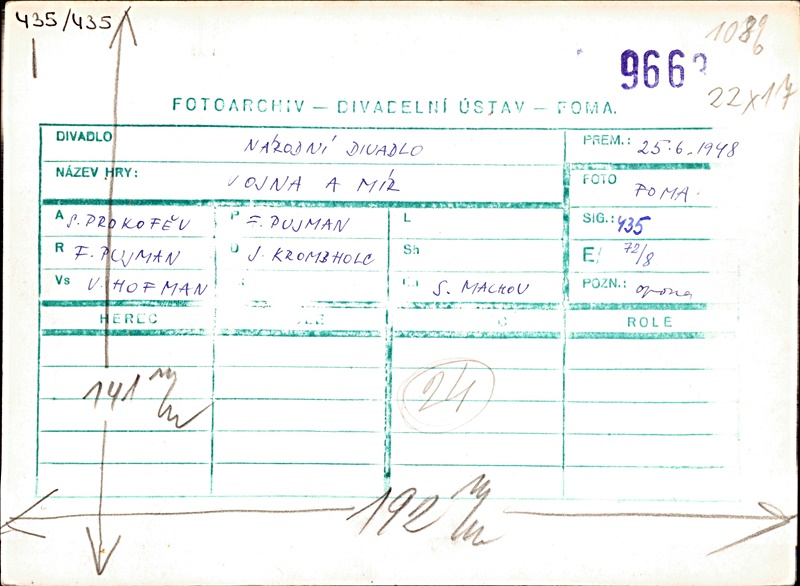 435/435
1086
22x17
FOTOARCHIV — DIVADELNÍ ÚSTAV — FOMA.
DIVADLO NÁRODNÍ DIVADLO PREM.: 25.6.1948
NÁZEV HRY: VOJNA A MÍR FOTO FOMA.
A S. PROKOFĚV P F. PUJMAN L SIG.: 435
R F. PUJMAN D J. KROMBHOLC Sh F. 72/8
Vs V. HOFMAN S. MACHOV POZN.: opona
HEREC ROLE
141 m/m
24
192 m/m